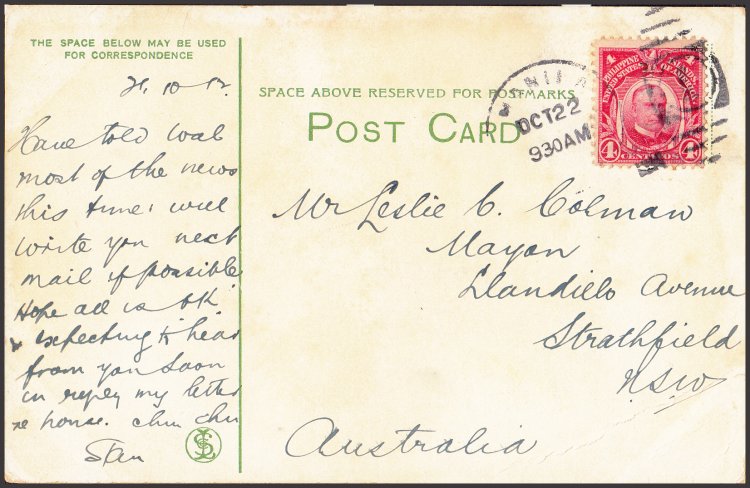 THE SPACE BELOW MAY BE USED
FOR CORRESPONDENCE
SPACE ABOVE RESERVED FOR POSTMARKS
POST CARD
OCT 22
930 AM
PHILIPPINE ISLANDS
UNITED STATES OF AMERICA
4 4
CENTAVOS
10 12.
Have told
most of the news
this time: will
write you next
mail if possible
Hope all is OK
& expecting to hear
from you soon
in reply my letter
re house. Chin Chin
Stan
Mr Leslie C. Colman
Mayon
Llandilo Avenue
Strathfield
NSW
Australia